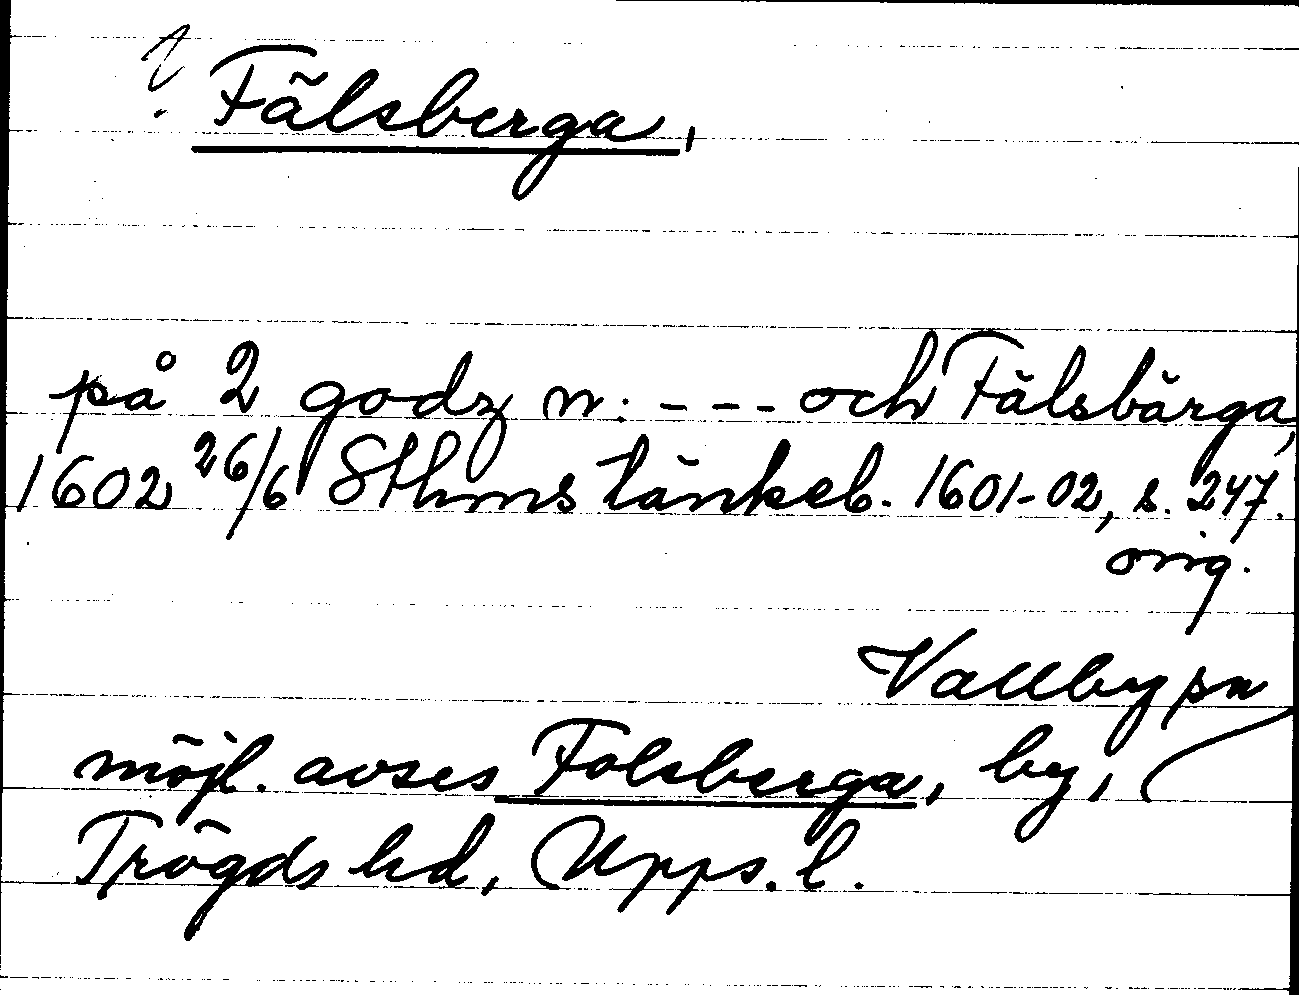 ? Fälsberga,
på 2 godz n: - - - och Fälsbärga,
1602 26/6 Sthms tänkeb. 1601-02, s. 247.
orig.
Vallby sn
möjl. avses Folsberga, by,
Trögds hd, Upps. l.